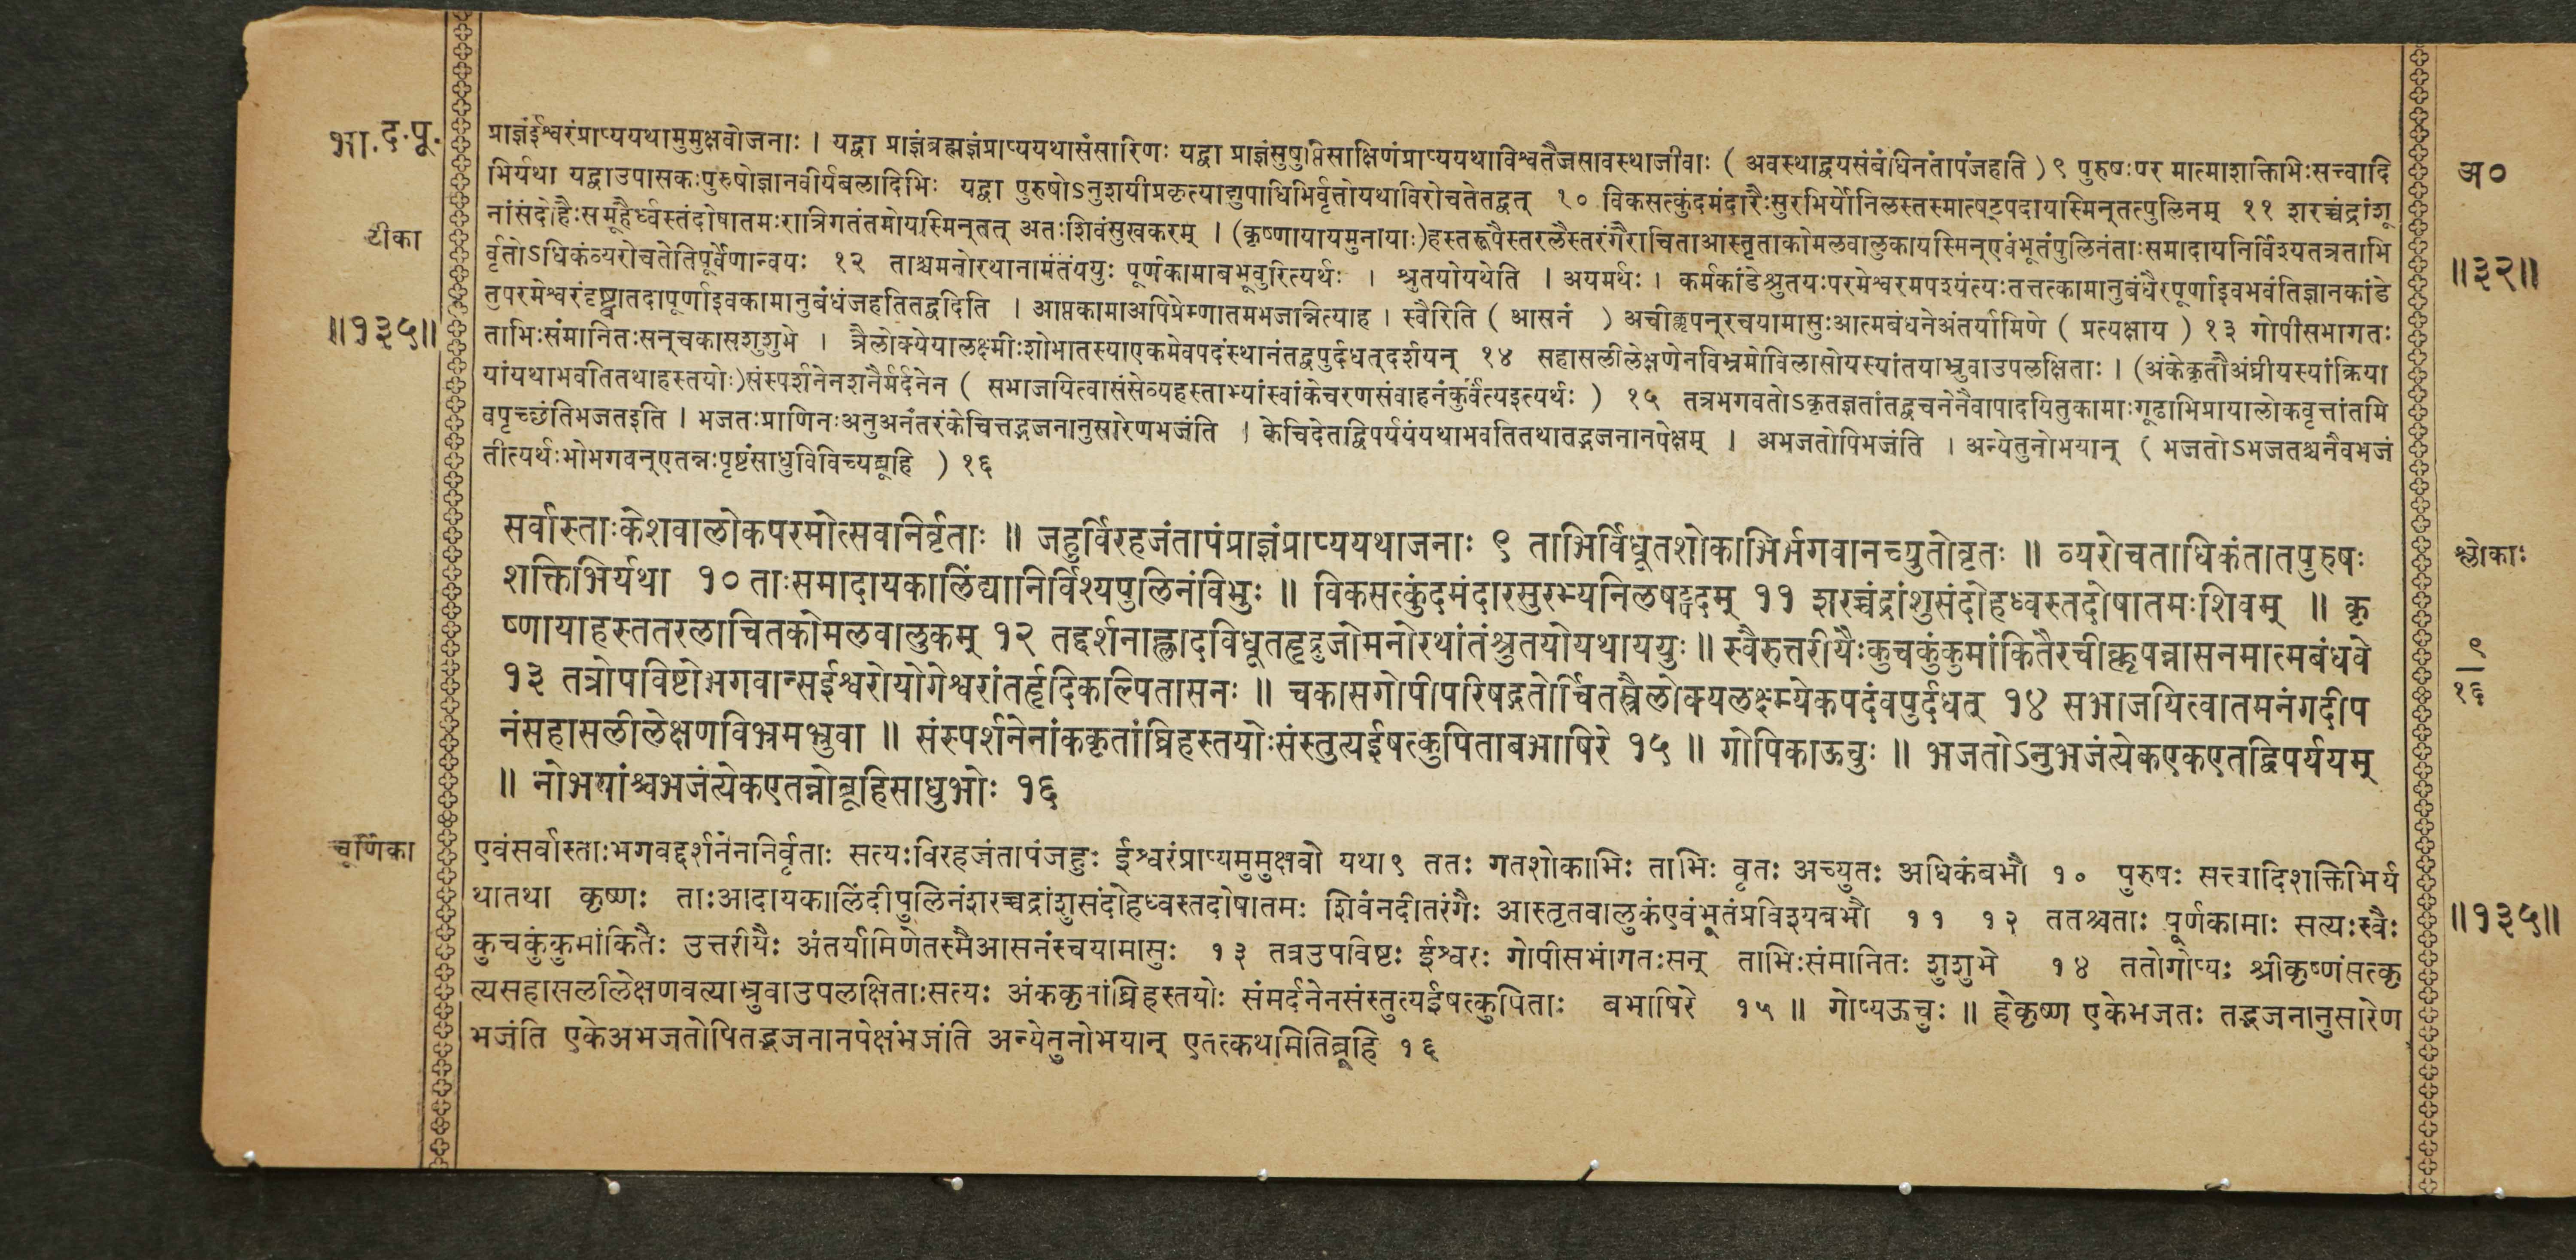 भा.द.पू.
प्राज्ञंईश्वरंप्राप्ययथामुमुक्षवोजनाः । यद्वा प्राज्ञंब्रह्मज्ञंप्राप्ययथासंसारिणः यद्वा प्राज्ञंसुषुप्तिसाक्षिणंप्राप्ययथाविश्वतैजसावस्थाजीवाः ( अवस्थाद्वयसंबंधिनंतापंजहति ) ९ पुरुषःपर मात्माशक्तिभिःसत्त्वादि
भिर्यथा यद्वाउपासकःपुरुषोज्ञानवीर्यबलादिभिः यद्वा पुरुषोऽनुशयीप्रकृत्याद्युपाधिभिर्वृतोयथाविरोचतेतद्वत् १० विकसत्कुंदमंदारैःसुरभिर्योनिलस्तस्मात्षट्पदायस्मिन्तत्पुलिनम् ११ शरच्चंद्रांशू
नांसंदोहैःसमूहैर्ध्वस्तंदोषातमःरात्रिगतंतमोयस्मिन्तत् अतःशिवंसुखकरम् । (कृष्णायायमुनायाः)हस्तरूपैस्तरलैस्तरंगैराचिताआस्तृताकोमलवालुकायस्मिन्एवंभूतंपुलिनंताःसमादायनिर्विश्यतत्रताभि
र्वृतोऽधिकंव्यरोचतेतिपूर्वेणान्वयः १२ ताश्चमनोरथानामंतंययुः पूर्णकामाबभूवुरित्यर्थः । श्रुतयोयथेति । अयमर्थः । कर्मकांडेश्रुतयःपरमेश्वरमपश्यंत्यःतत्तत्कामानुबंधैरपूर्णाइवभवंतिज्ञानकांडे
तुपरमेश्वरंदृष्ट्वातदापूर्णाइवकामानुबंधंजहतितद्वदिति । आप्तकामाअपिप्रेम्णातमभजन्नित्याह । स्वैरिति ( आसनं ) अचीक्लृपन्रचयामासुःआत्मबंधनेअंतर्यामिणे ( प्रत्यक्षाय ) १३ गोपीसभागतः
ताभिःसंमानितःसन्चकासशुशुभे । त्रैलोक्येयालक्ष्मीःशोभातस्याएकमेवपदंस्थानंतद्वपुर्दधत्दर्शयन् १४ सहासलीलेक्षणेनविभ्रमोविलासोयस्यांतयाभ्रुवाउपलक्षिताः । (अंकेकृतौअंघ्रीयस्यांक्रिया
यांयथाभवतितथाहस्तयोः)संस्पर्शनेनशनैर्मर्दनेन ( सभाजयित्वासंसेव्यहस्ताभ्यांस्वांकेचरणसंवाहनंकुर्वत्यइत्यर्थः ) १५ तत्रभगवतोऽकृतज्ञतांतद्वचनेनैवापादयितुकामाःगूढाभिप्रायालोकवृत्तांतमि
वपृच्छंतिभजतइति । भजतःप्राणिनःअनुअनंतरंकेचित्तद्भजनानुसारेणभजंति । केचिदेतद्विपर्ययंयथाभवतितथातद्भजनानपेक्षम् । अभजतोपिभजंति । अन्येतुनोभयान् ( भजतोऽभजतश्चनैवभजं
तीत्यर्थःभोभगवन्एतन्नःपृष्टंसाधुविविच्यब्रूहि ) १६
टीका
॥१३५॥
अ०
॥३२॥
सर्वास्ताःकेशवालोकपरमोत्सवनिर्वृताः ॥ जहुर्विरहजंतापंप्राज्ञंप्राप्ययथाजनाः ९ ताभिर्विधूतशोकाभिर्भगवानच्युतोवृतः ॥ व्यरोचताधिकंतातपुरुषः
शक्तिभिर्यथा १० ताःसमादायकालिंद्यानिर्विश्यपुलिनंविभुः ॥ विकसत्कुंदमंदारसुरभ्यनिलषट्पदम् ११ शरच्चंद्रांशुसंदोहध्वस्तदोषातमःशिवम् ॥ कृ
ष्णायाहस्ततरलाचितकोमलवालुकम् १२ तद्दर्शनाह्लादविधूतहृद्रुजोमनोरथांतंश्रुतयोयथाययुः ॥ स्वैरुत्तरीयैःकुचकुंकुमांकितैरचीक्लृपन्नासनमात्मबंधवे
१३ तत्रोपविष्टोभगवान्सईश्वरोयोगेश्वरांतर्हृदिकल्पितासनः ॥ चकासगोपीपरिषद्गतोर्चितस्त्रैलोक्यलक्ष्म्येकपदंवपुर्दधत् १४ सभाजयित्वातमनंगदीप
नंसहासलीलेक्षणविभ्रमभ्रुवा ॥ संस्पर्शनेनांककृतांघ्रिहस्तयोःसंस्तुत्यईषत्कुपिताबभाषिरे १५ ॥ गोपिकाऊचुः ॥ भजतोऽनुभजंत्येकएकएतद्विपर्ययम्
॥ नोभयांश्चभजंत्येकएतन्नोब्रूहिसाधुभोः १६
श्लोकाः
९
१६
चूर्णिका
एवंसर्वास्ताःभगवद्दर्शनंननिर्वृताः सत्यःविरहजंतापंजहुः ईश्वरंप्राप्यमुमुक्षवो यथा९ ततः गतशोकाभिः ताभिः वृतः अच्युतः अधिकंबभौ १० पुरुषः सत्त्वादिशक्तिभिर्य
थातथा कृष्णः ताःआदायकालिंदीपुलिनंशरच्चद्रांशुसंदोहेध्वस्तदोषातमः शिवंनदीतरंगैः आस्तृतवालुकंएवंभूतंप्रविश्यबभौ ११ १२ ततश्चताः पूर्णकामाः सत्यःस्वैः
कुचकुंकुमांकितैः उत्तरीयैः अंतर्यामिणेतस्मैआसनंरचयामासुः १३ तत्रउपविष्टः ईश्वरः गोपीसभांगतःसन् ताभिःसंमानितः शुशुभे १४ ततोगोप्यः श्रीकृष्णंसत्कृ
त्यसहासलीलेक्षणवत्याभ्रुवाउपलक्षिताःसत्यः अंककृतांघ्रिहस्तयोः संमर्दनेनसंस्तुत्यईषत्कुपिताः बभाषिरे १५ ॥ गोप्यऊचुः ॥ हेकृष्ण एकेभजतः तद्भजनानुसारेण
भजंति एकेअभजतोपितद्भजनानपेक्षंभजंति अन्येतुनोभयान् एतत्कथमितिब्रूहि १६
॥१३५॥